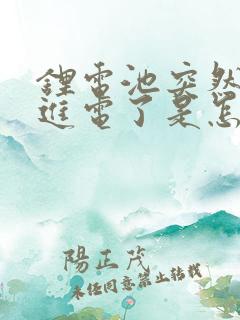 鋰電池突然
進電了是怎
陽正茂
未经同意禁止转载